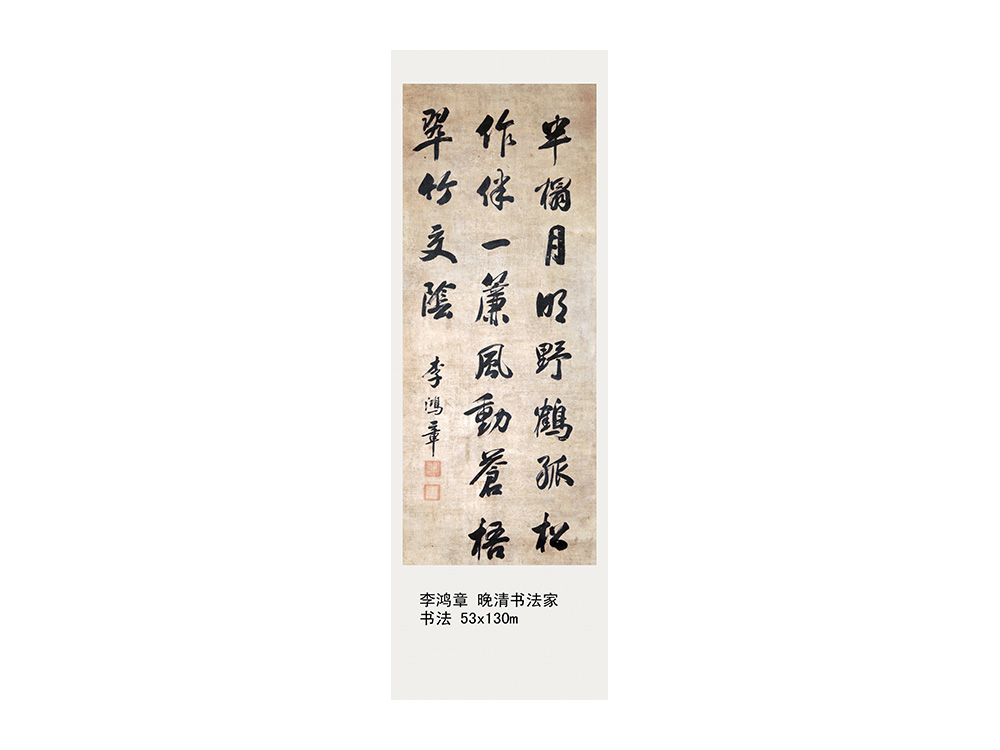 半榻月明野鶴孤松
作伴一簾風動蒼梧
翠竹交陰
李鴻章
李鸿章 晚清书法家
书法 53x130m